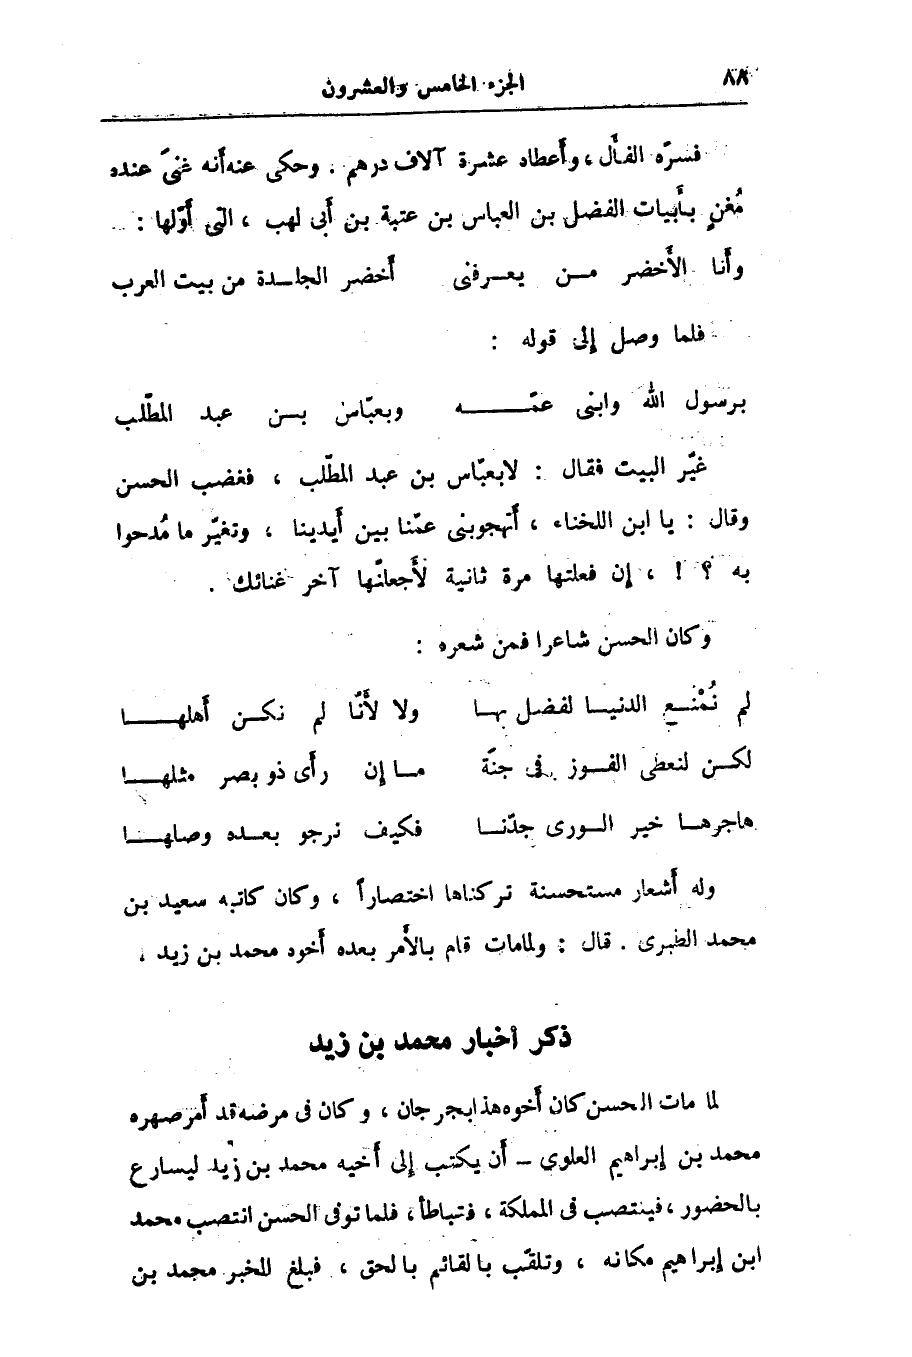 ٨٨
الجزء الخامس والعشرون
فسرّه الفأل ، وأعطاه عشرة آلاف درهم . وحكى عنه أنه غنىّ عنده
مُغنٍ بأبيات الفضل بن العباس بن عتبة بن أبى لهب ، التى أوّلها :
وأنا الأخضر من يعرفنى أخضر الجلدة من بيت العرب
فلما وصل إلى قوله :
برسول الله وابنى عمّه وبعبّاس بن عبد المطّلب
غيّر البيت فقال : لابعبّاس بن عبد المطّلب ، فغضب الحسن
وقال : يا ابن اللخناء ، أتهجوبنى عمّنا بين أيدينا ، وتغيّر ما مُدحوا
به ؟ ! ، إن فعلتها مرة ثانية لأجعلنّها آخر غنائك .
وكان الحسن شاعرا فمن شعره :
لم نُمْنع الدنيا لفضل بها ولا لأنّا لم نكن أهلها
لكن لنعطى الفوز فى جنّة ما إن رأى ذو بصر مثلها
هاجرها خير الورى جدّنا فكيف نرجو بعده وصلها
وله أشعار مستحسنة تركناها اختصاراً ، وكان كاتبه سعيد بن
محمد الطبرى . قال : ولمامات قام بالأمر بعده أخوه محمد بن زيد ،
ذكر أخبار محمد بن زيد
لما مات الحسن كان أخوه هذا بجرجان ، وكان فى مرضه قد أمر صهره
محمد بن إبراهيم العلوى – أن يكتب إلى أخيه محمد بن زيد ليسارع
بالحضور ، فينتصب فى المملكة ، فتباطأ ، فلما توفى الحسن انتصب محمد
ابن إبراهيم مكانه ، وتلقّب بالقائم بالحق ، فبلغ الخبر محمد بن